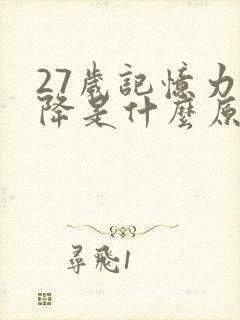 27歲記憶力
降是什麼原
尋飛1